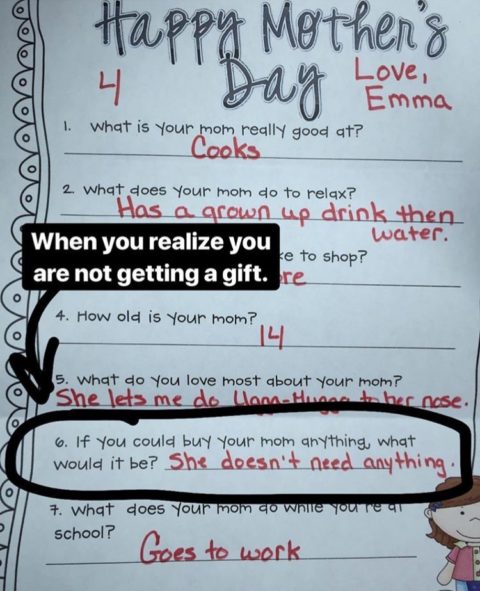 Happy Mother's
Day
4
Love,
Emma
1. What is your mom really good at?
Cooks
2. What does your mom do to relax?
Has a grown up drink then
water.
When you realize you
are not getting a gift.
to shop?
4. How old is your mom?
14
5. What do you love most about your mom?
She lets me do Ugga-Mugga to her nose.
6. If you could buy your mom anything, what
would it be? She doesn't need anything.
7. What does your mom do while you're at
school?
Goes to work